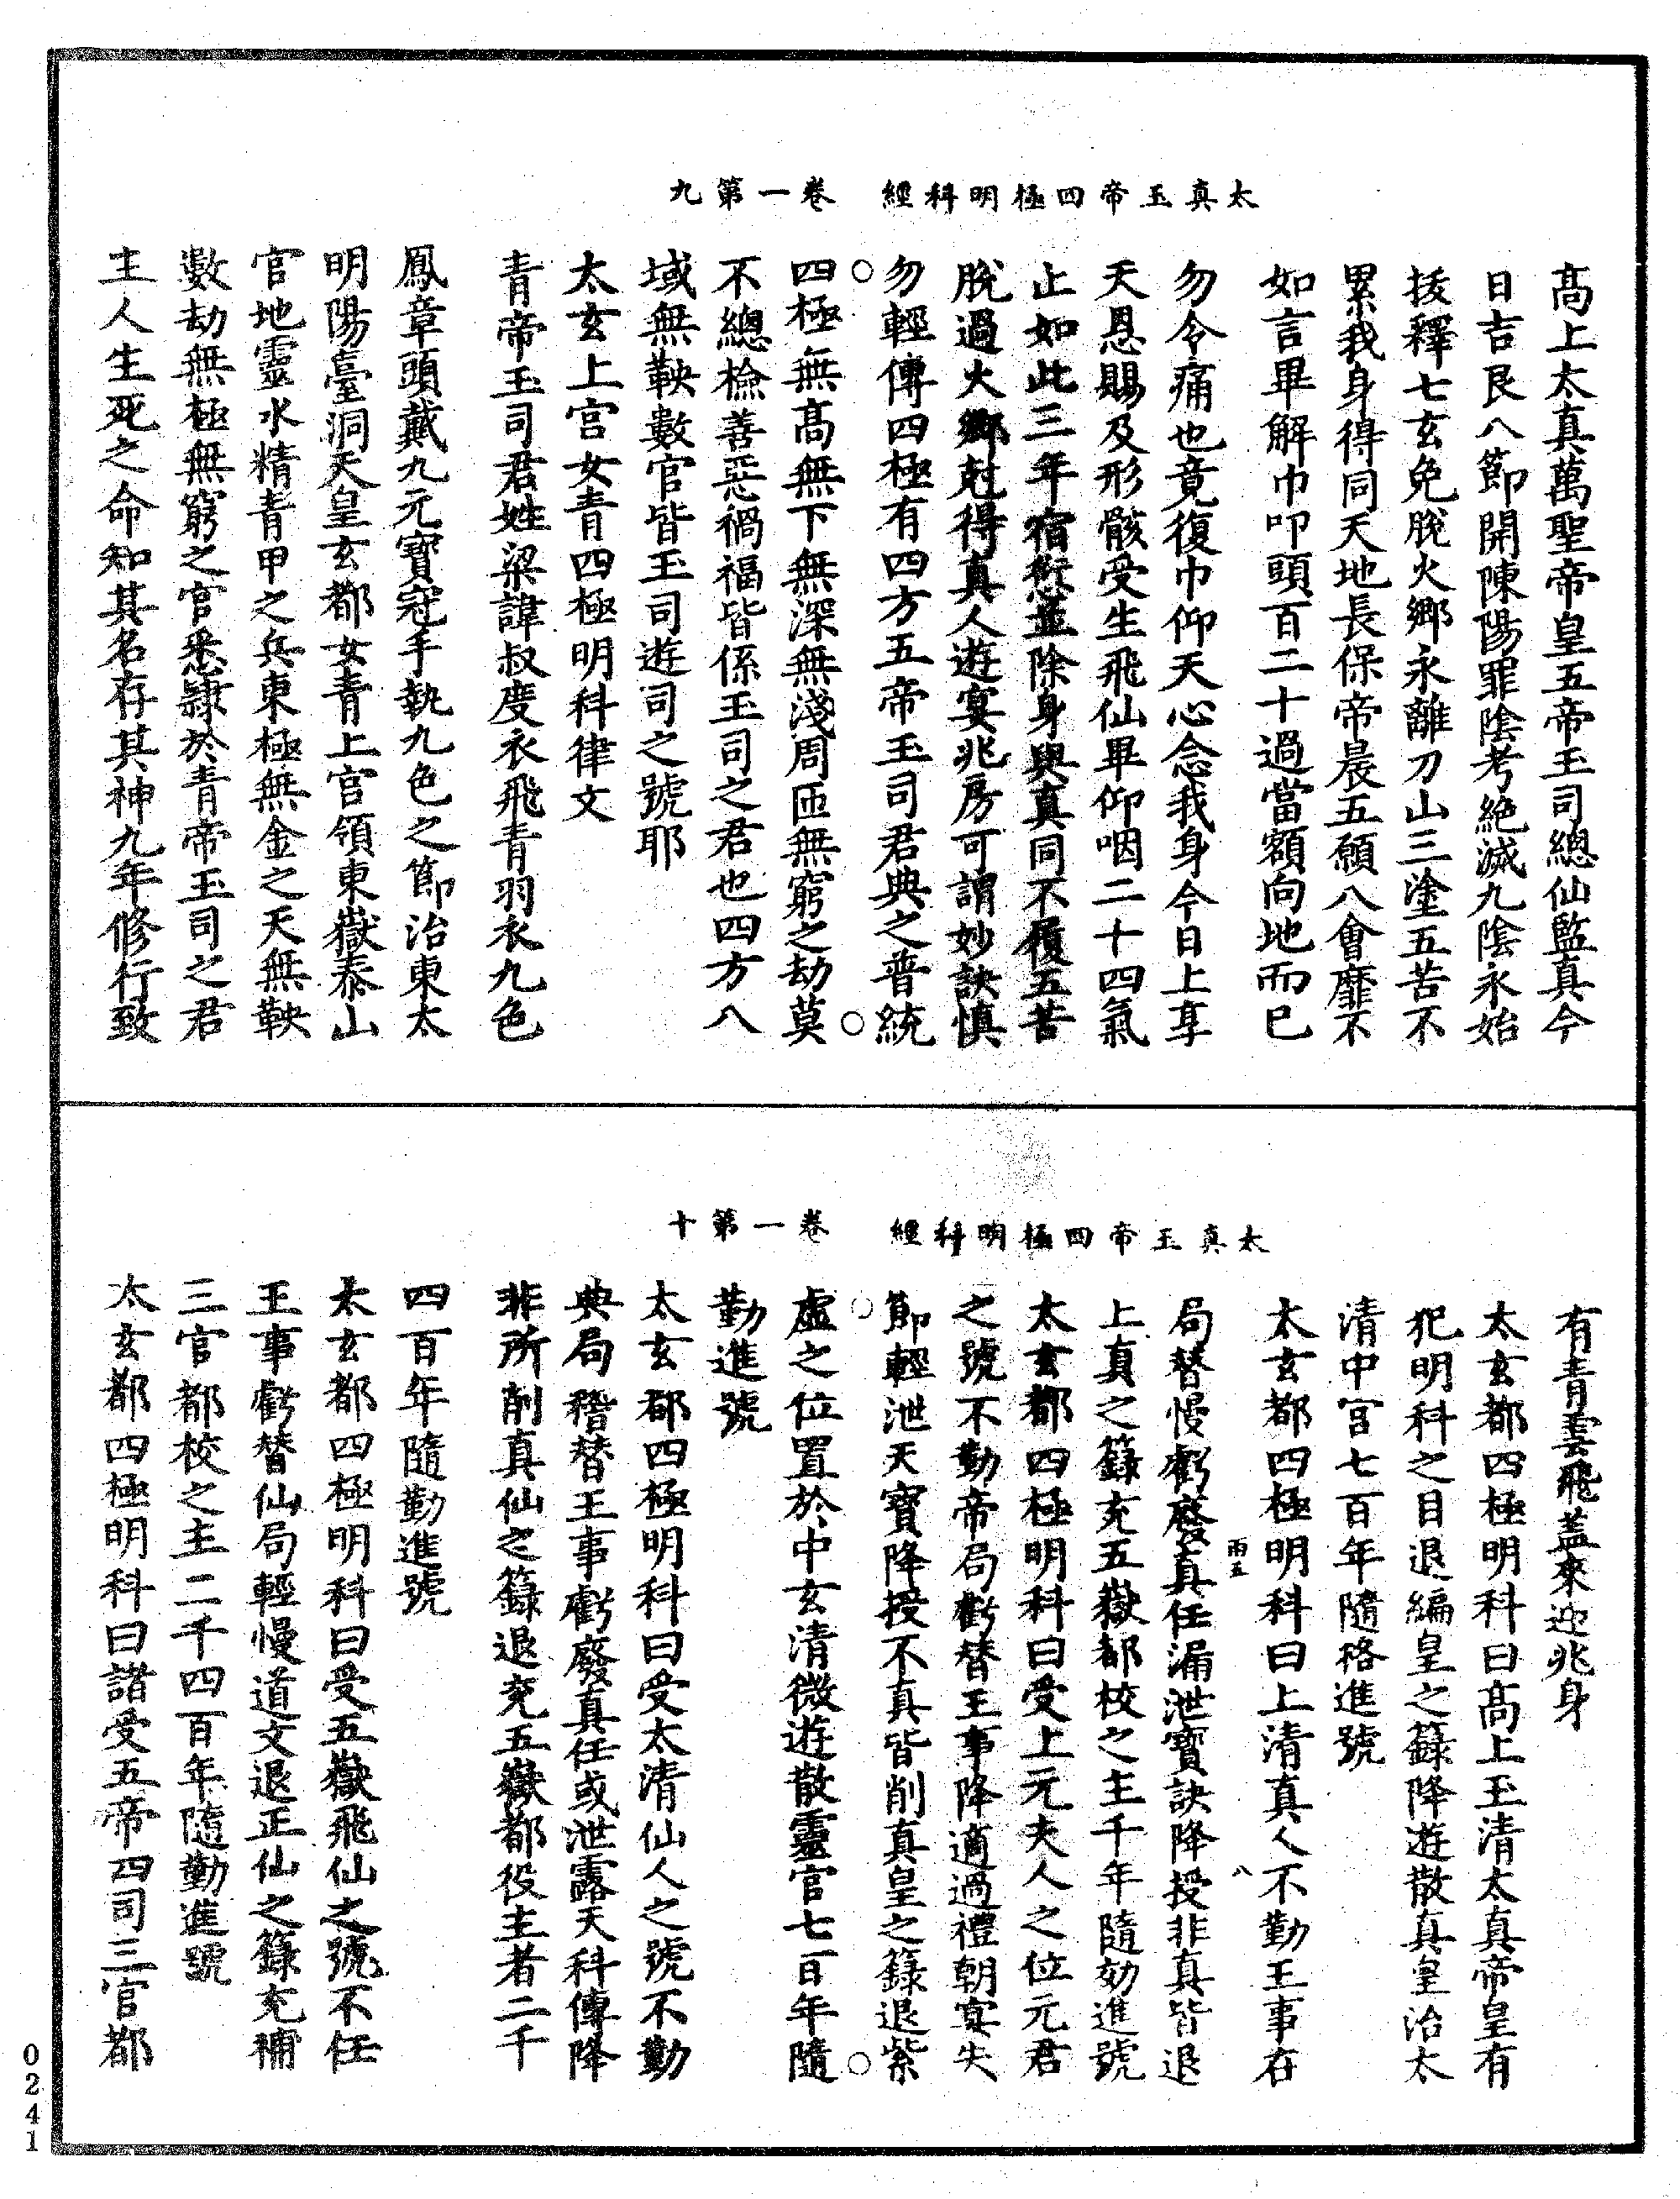 太真玉帝四極明科經　卷一第九
高上太真萬聖帝皇五帝玉司總仙監真今
日吉艮八節開陳陽罪陰考絕滅九陰永始
拔釋七玄免脫火鄉永離刀山三塗五苦不
累我身得同天地長保帝晨五願八會靡不
如言畢解巾叩頭百二十過當額向地而已
勿令痛也竟復巾仰天心念我身今日上享
天恩賜及形骸受生飛仙畢仰咽二十四氣
止如此三年宿愆並除身與真同不履五苦
脫過火鄉尅得真人遊宴兆房可謂妙訣慎
勿輕傳四極有四方五帝玉司君典之普統
四極無高無下無深無淺周匝無窮之劫莫
不總檢善惡禍福皆係玉司之君也四方八
域無鞅數官皆玉司遊司之號耶
太玄上宮女青四極明科律文
青帝玉司君姓梁諱叔度衣飛青羽衣九色
鳳章頭戴九元寶冠手執九色之節治東太
明陽臺洞天皇玄都女青上宮領東嶽泰山
官地靈水精青甲之兵東極無金之天無鞅
數劫無極無窮之官悉隸於青帝玉司之君
主人生死之命知其名存其神九年修行致
太真玉帝四極明科經　卷一第十
有青雲飛蓋來迎兆身
太玄都四極明科曰高上玉清太真帝皇有
犯明科之目退編皇之籙降遊散真皇治太
清中宮七百年隨格進號
太玄都四極明科曰上清真人不勤王事在
局替慢虧廢真任漏泄寶訣降授非真皆退
上真之籙充五嶽都校之主千年隨劾進號
太玄都四極明科曰受上元夫人之位元君
之號不勤帝局虧替王事降適過禮朝宴失
節輕泄天寶降授不真皆削真皇之籙退紫
虛之位置於中玄清微遊散靈官七百年隨
勤進號
太玄都四極明科曰受太清仙人之號不勤
典局稽替王事虧廢真任或泄露天科傳降
非所削真仙之籙退充五嶽都役主者二千
四百年隨勤進號
太玄都四極明科曰受五嶽飛仙之號不任
王事虧替仙局輕慢道文退正仙之籙充補
三官都校之主二千四百年隨勤進號
太玄都四極明科曰諸受五帝四司三官都
雨五
八
0241